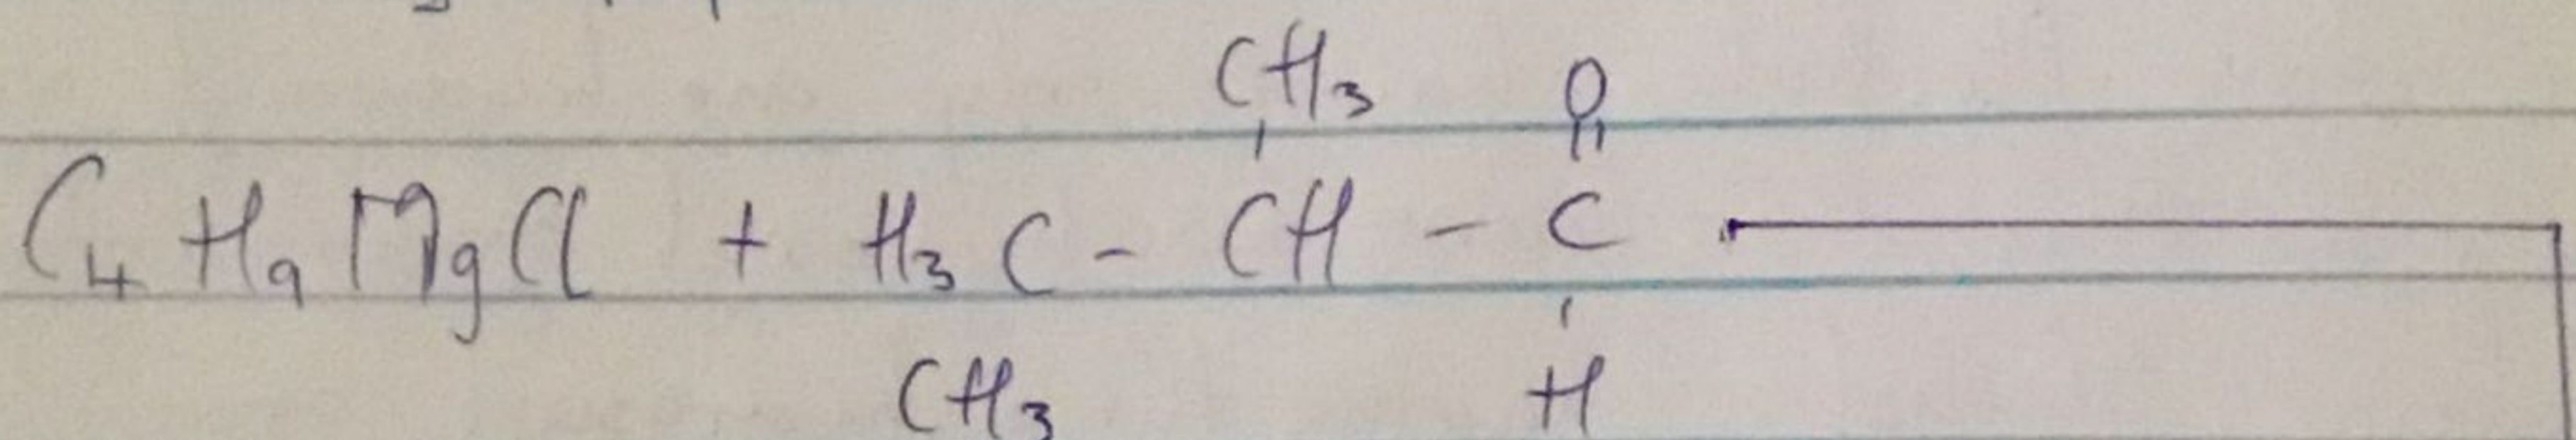 CH3 O
C4H9MgCl + H3C - CH - C
CH3 H